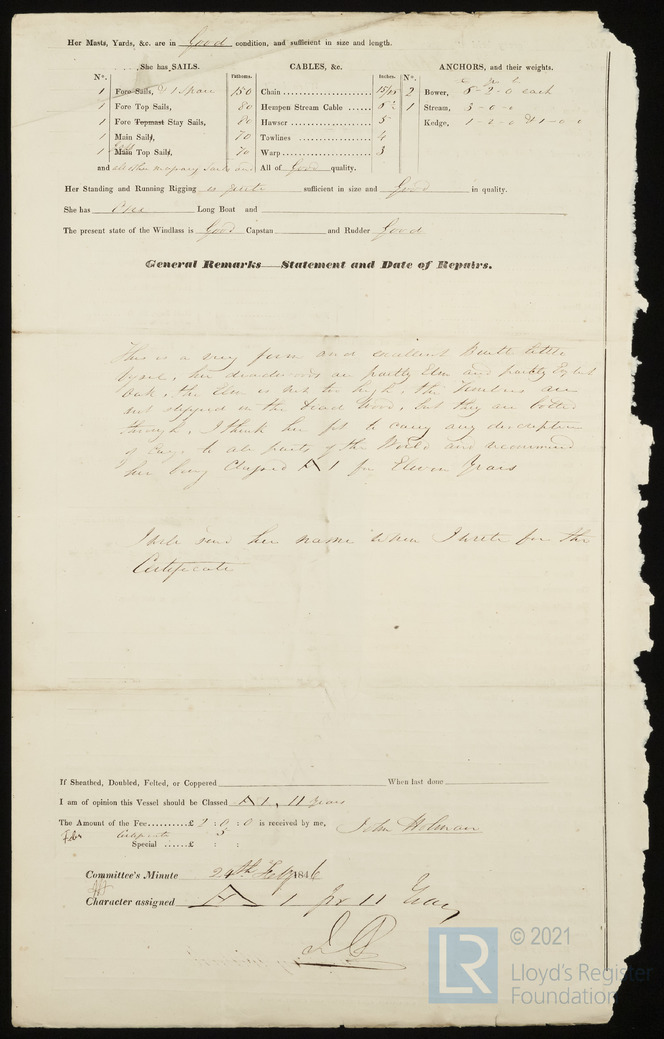 Her Masts, Yards, &c. are in Good condition, and sufficient in size and length.
She has SAILS. CABLES, &c. ANCHORS, and their weights.
N°. Fathoms. Inches. N°.
1 Fore Sails, & 1 Spare 150 Chain 15/16 2 Bower, 5-2-0 each
1 Fore Top Sails, 80 Hempen Stream Cable 1 Stream, 3-0-0
1 Fore Topmast Stay Sails, 80 Hawser 5 Kedge, 1-2-0 & 1-0-0
1 Main Sails, 70 Towlines 4
1 Main Top Sails, 70 Warp 3
and all other necessary Sails and All of Good quality.
Her Standing and Running Rigging is quite sufficient in size and Good in quality.
She has One Long Boat and
The present state of the Windlass is Good Capstan and Rudder Good
General Remarks Statement and Date of Repairs.
This is a very firm and excellent Built little
Vessel, her deadwoods are partly Elm and partly English
Oak, the Elm is not too high, the Timbers are
not stepped in the Dead Wood, but they are bolted
through, I think her fit to carry any description
of Cargo to all parts of the World and recommend
her being Classed A 1 for Eleven Years
I will send her name when I write for the
Certificate
If Sheathed, Doubled, Felted, or Coppered When last done
I am of opinion this Vessel should be Classed A 1, 11 Years
The Amount of the Fee..........£ 2 : 0 : 0 is received by me, John Holman
Certificate 5
Special ......£ : :
Committee's Minute 24th Feby 1846
Character assigned A 1 for 11 Years
© 2021
LR
Lloyd's Register
Foundation